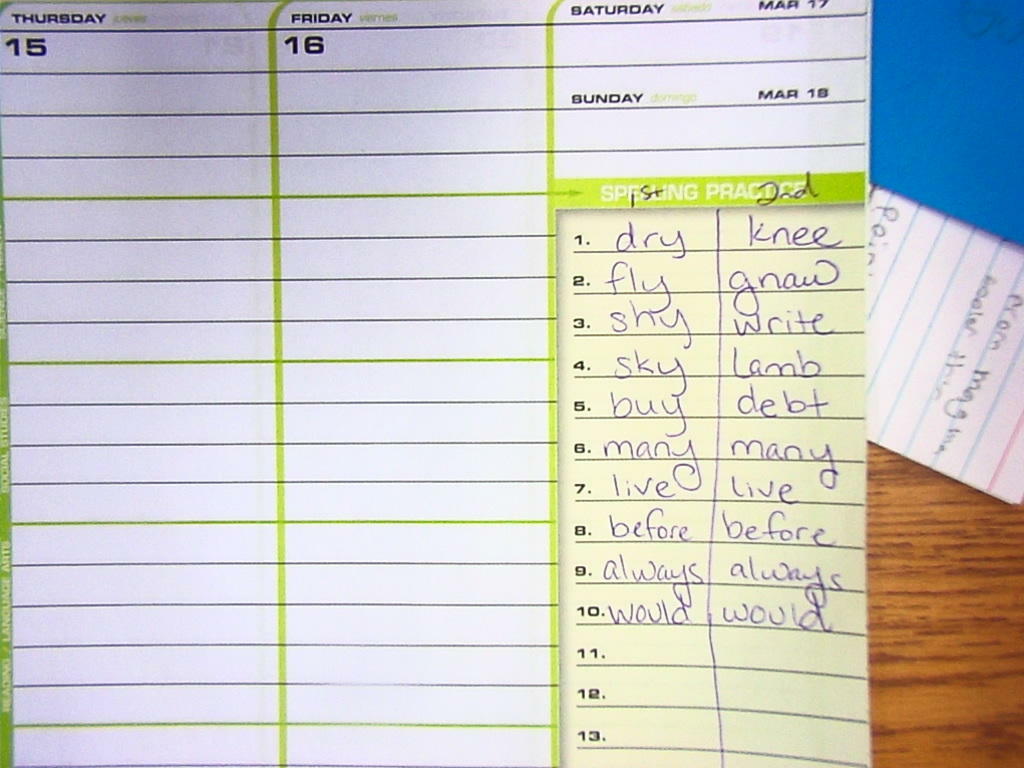 THURSDAY jueves
15
FRIDAY viernes
16
SATURDAY sábado MAR 17
SUNDAY domingo MAR 18
SPELLING PRACTICE
1st 2nd
1. dry knee
2. fly gnaw
3. shy write
4. sky lamb
5. buy debt
6. many many
7. live live
8. before before
9. always always
10. would would
11.
12.
13.
SOCIAL STUDIES
READING / LANGUAGE ARTS
From